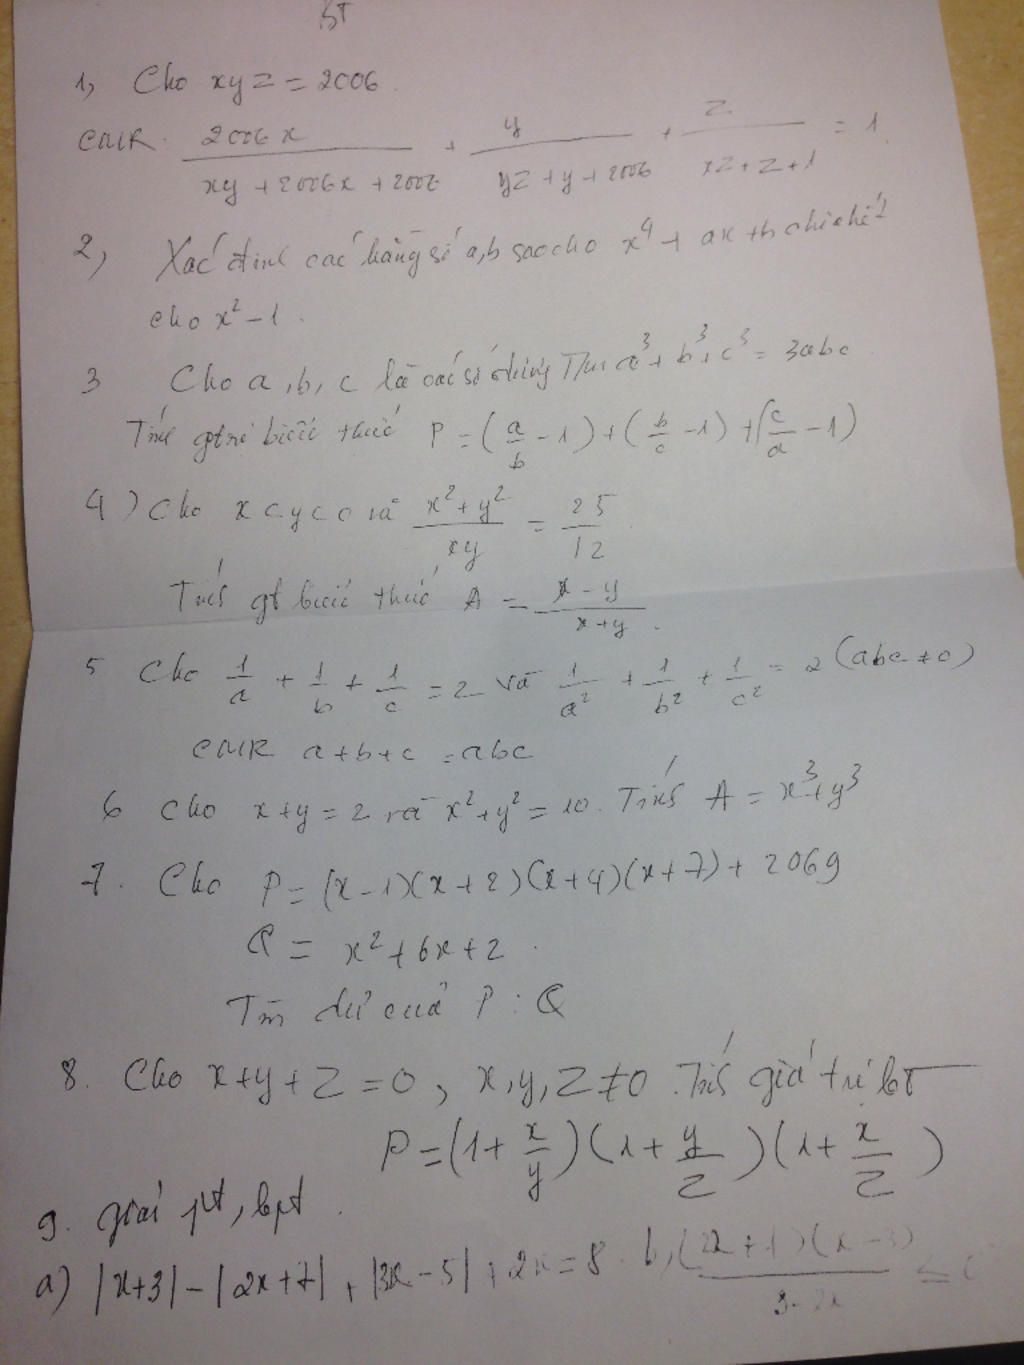 BT
1, Cho xyz = 2006.
CMR. 2006x/(xy + 2006x + 2006) + y/(yz + y + 2006) + z/(xz + z + 1) = 1
2, Xác định các hằng số a, b sao cho x⁴ + ax + b chia hết
cho x² - 1.
3 Cho a, b, c là các số dương TM a³ + b³ + c³ = 3abc
Tính gt trị biểu thức P = (a/b - 1) + (b/c - 1) + (c/a - 1)
4) Cho x < y < 0 và (x² + y²)/(xy) = 25/12
Tính gt biểu thức A = (x - y)/(x + y).
5 Cho 1/a + 1/b + 1/c = 2 và 1/a² + 1/b² + 1/c² = 2 (abc ≠ 0)
CMR a + b + c = abc
6 Cho x + y = 2 và x² + y² = 10. Tính A = x³ + y³
7. Cho P = (x - 1)(x + 2)(x + 4)(x + 7) + 2069
Q = x² + 6x + 2.
Tìm dư của P : Q
8. Cho x + y + z = 0, x, y, z ≠ 0. Tính giá trị bt
P = (1 + x/y)(1 + y/z)(1 + x/z)
9. giải pt, bpt.
a) |x + 3| - |2x + 7| + |3x - 5| + 2x = 8. b, (2x + 1)(x - 3)/(3 - 2x) ≤ 0